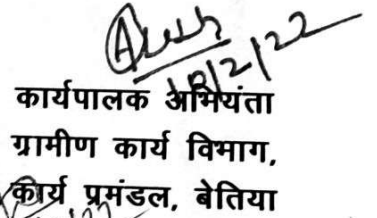 18/2/22
कार्यपालक अभियंता
ग्रामीण कार्य विभाग,
कार्य प्रमंडल, बेतिया